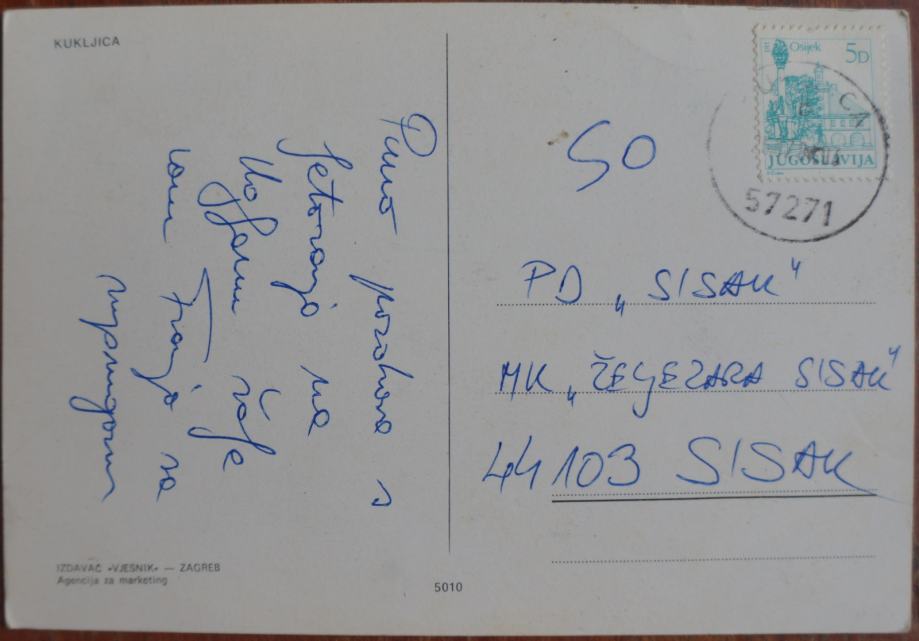 KUKLJICA
Puno pozdrava s
ljetovanja na
Ugljanu šalje
vam Franjo sa
suprugom
IZDAVAČ »VJESNIK« — ZAGREB
Agencija za marketing
5010
Osijek 5D
JUGOSLAVIJA
57271
SO
PD „SISAK“
MK „ŽELJEZARA SISAK“
44103 SISAK